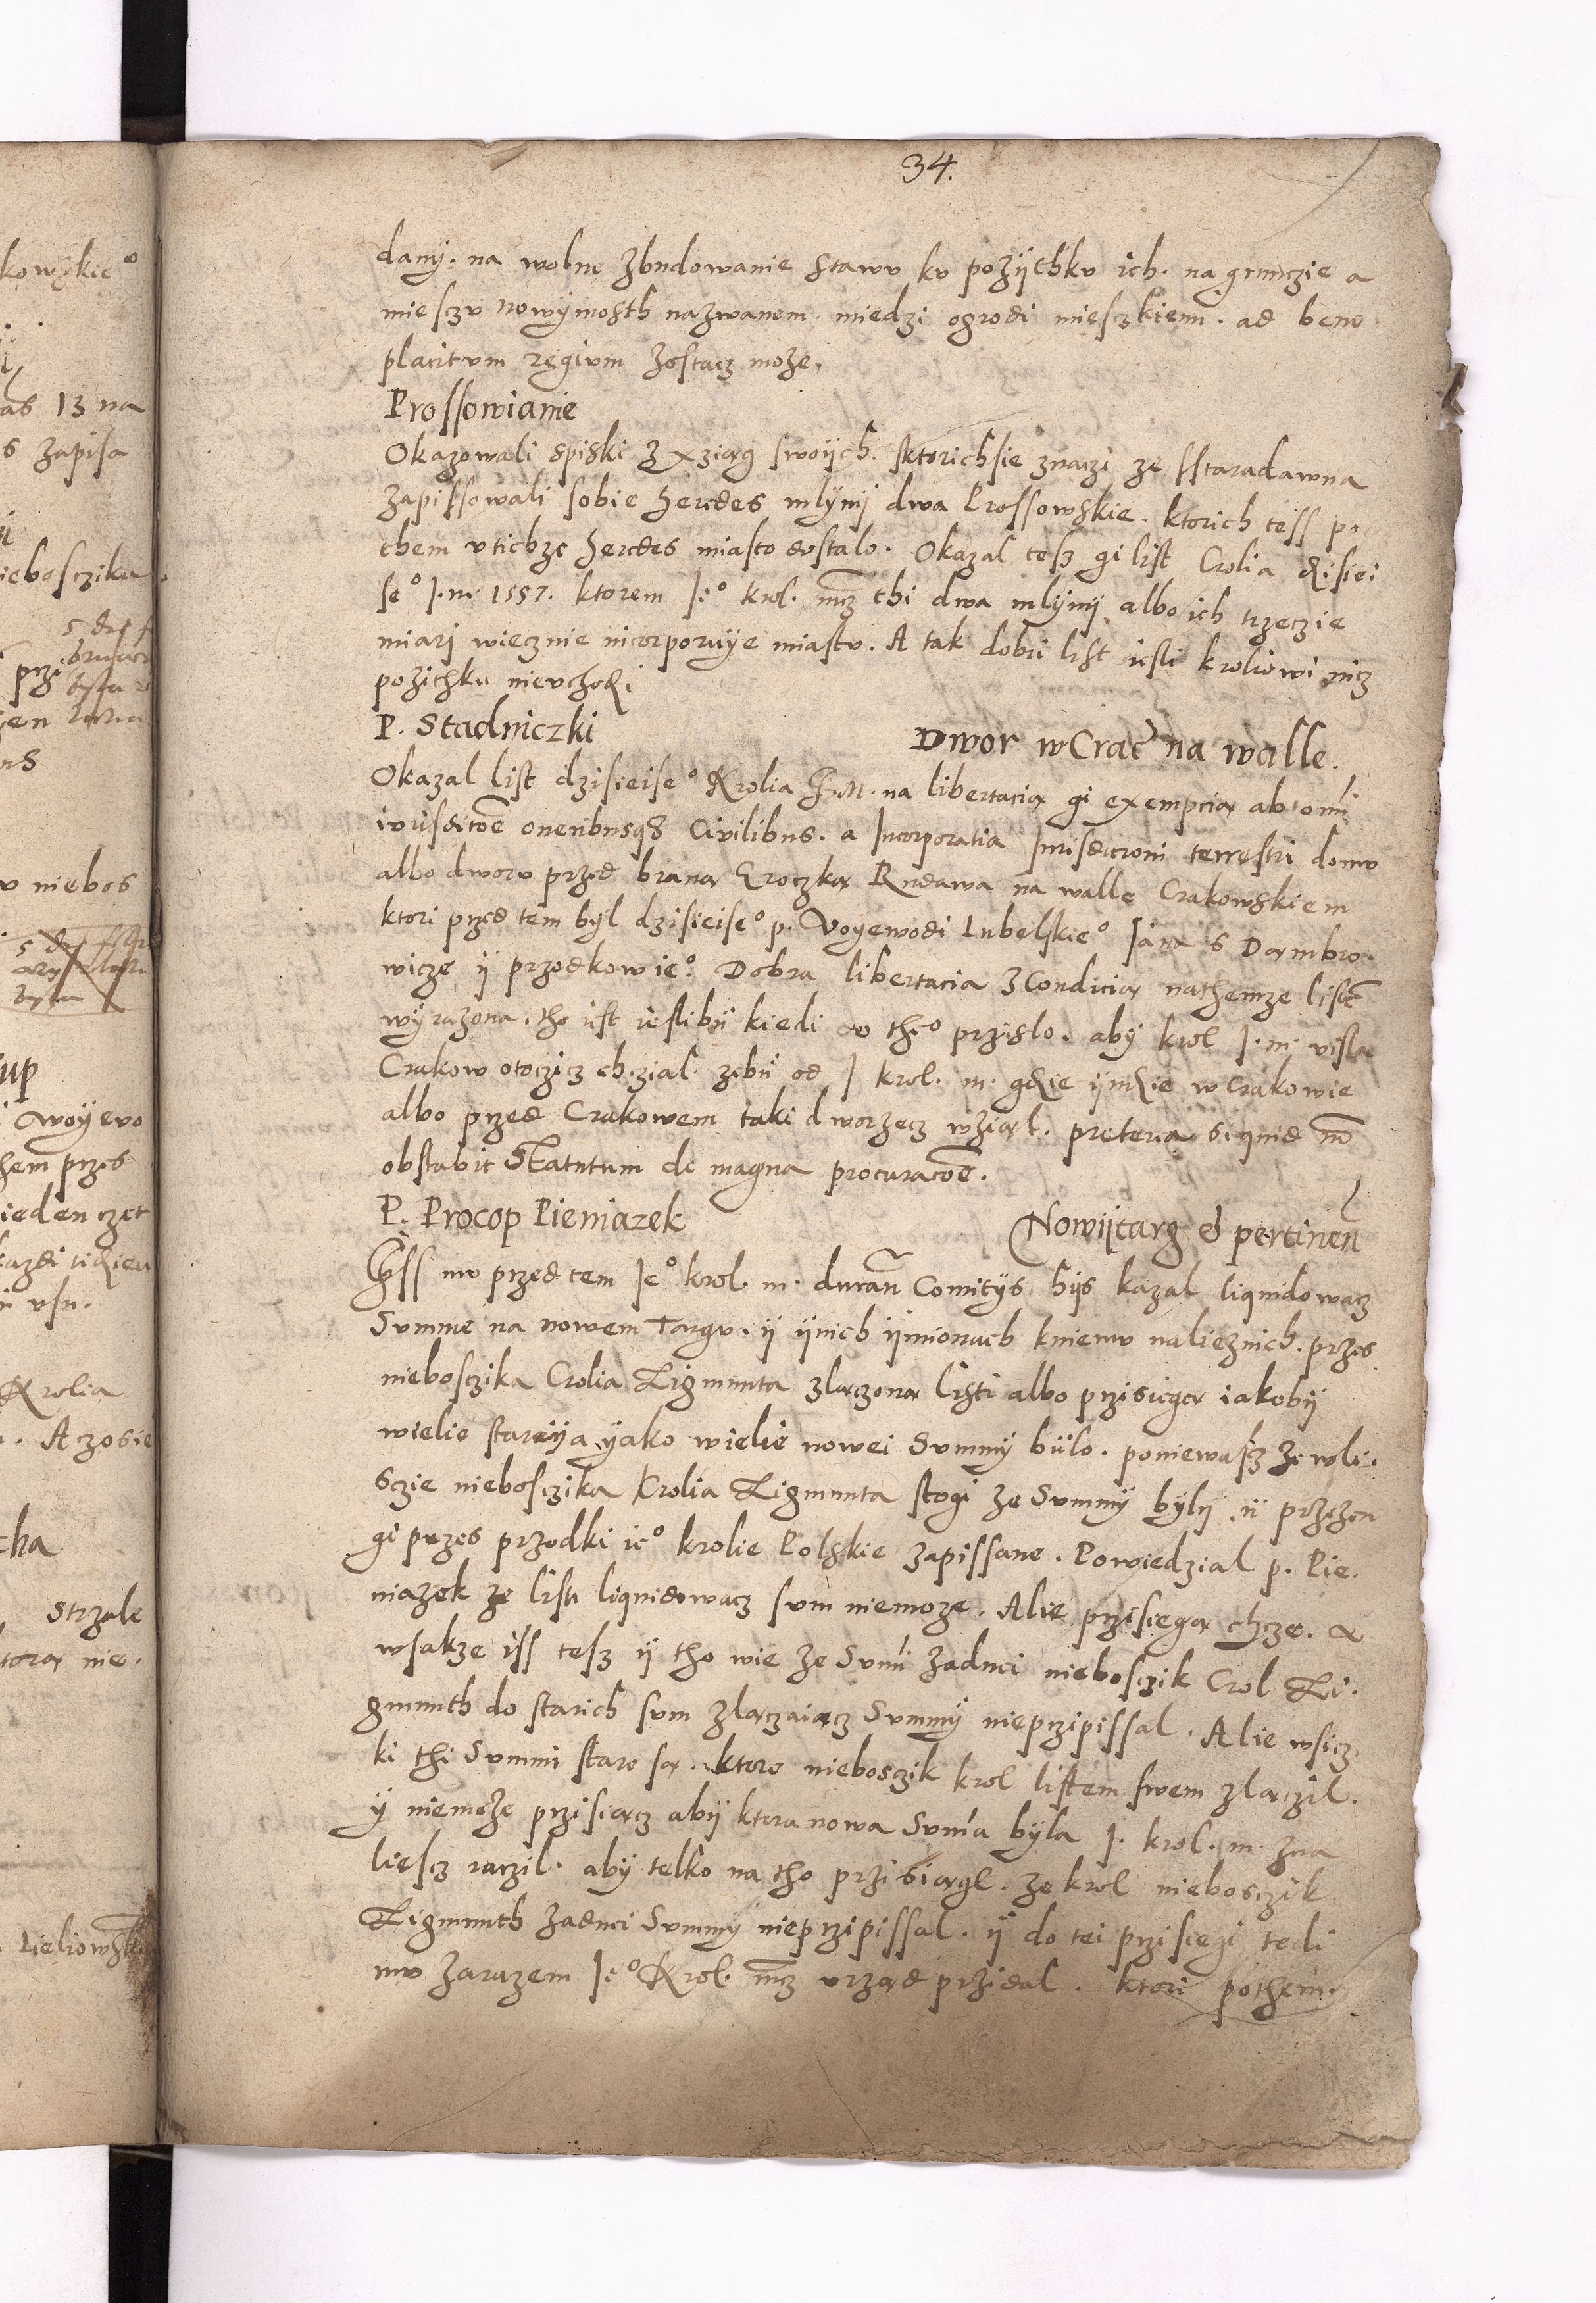 34.
dany. na wolne zbudowanie stawu ku pożythku ich. na grunczie a
miesczu nowymosth nazwanem. miedzi ogrodi miesczkiemi. ad bene
placitum regium zostacz może.
Prossowianie
Okazowali spiski z xziąg swoijch. sktorichsie znaczi ze sstaradawna
zapissowali sobie heredes mlijny dwa Prossowskie. ktorich tess po
them utichze heredes miasto dostalo. Okazal tesz gi list Crolia dzisiei
seº J. m. 1557. ktorem Jeº krol. mcz thi dwa mlijny albo ich trzeczie
miari wiecznie incorporuije miastu. A tak dobri list iesli kroliowi nicz
pożithku nieuchodzi
P. Stadniczki
Dwor wCrac̄ na walle.
Okazal list dzisieiseº Krolia J. M. na libertacią gi exempcią ab om̄i
iurisditōe oneribusq3 Civilibus. a Incorporatia Jurisdictioni terrestri domu
albo dworu przed braną Groczką Rudawa na walle Crakowskiem
ktori przed tem byl dzisieiseº p. Voyewodi Lubelskieº Jana s Dąmbro.
wicze ij przodkow ieº. Dobra libertacia z Condicią nathemze liscē
wyrażona. tho iest iesliby kiedi do theº przyslo. aby krol J. m. wislą
Crakow otoczicz chczial. zeby od J krol. m. gdzie ijndzie w Crakowie
albo przed Crakowem taki dworzecz wżiąl. preterea siquid nō
obstabit Statutum de magna procuracōe.
P. Procop Pieniazek
Nowijtarg et pertineñ
Iss mu przedtem Jeº krol. m. durañ Comitijs hijs kazal liquidowacz
Summe na nowem Targu. ij ijnich ijmionach kniemu należnich. przes
nieboscżika Crolia Zigmunta zlączoną listi albo przisiegą iakoby
wielie stareija ijako wielie nowei Summy bijlo. poniewasz że w li.
sczie nieboscżika Crolia Zigmunta stogi że Summy byly ij przezen
gi przes przodki ieº krolie Polskie zapissane. Powiedzial p. Pie.
niazek że listi liquidowacz sum niemoże. Alie przisiegą chcze. a
wsakze iss tesz ij tho wie że Sum̄i żadnei nieboscżik Crol Zi.
gmunth do starich sum zlączaiącz Summy nieprzipissal. Alie wsicz.
ki thi Summi stare są. ktore nieboszcżik krol listem swem zlączil.
ij niemoże przisiącz aby ktora nowa Sum̄a byla J. krol. m. zna
liescz raczil. aby telko na tho przisiągl. ze krol nieboscżik
Zigmunth żadnei Summy nieprzipissal. ij do tei przisiegi tedi
mu żarazem Jeº Krol. mcz urząd przidal. ktori pothem